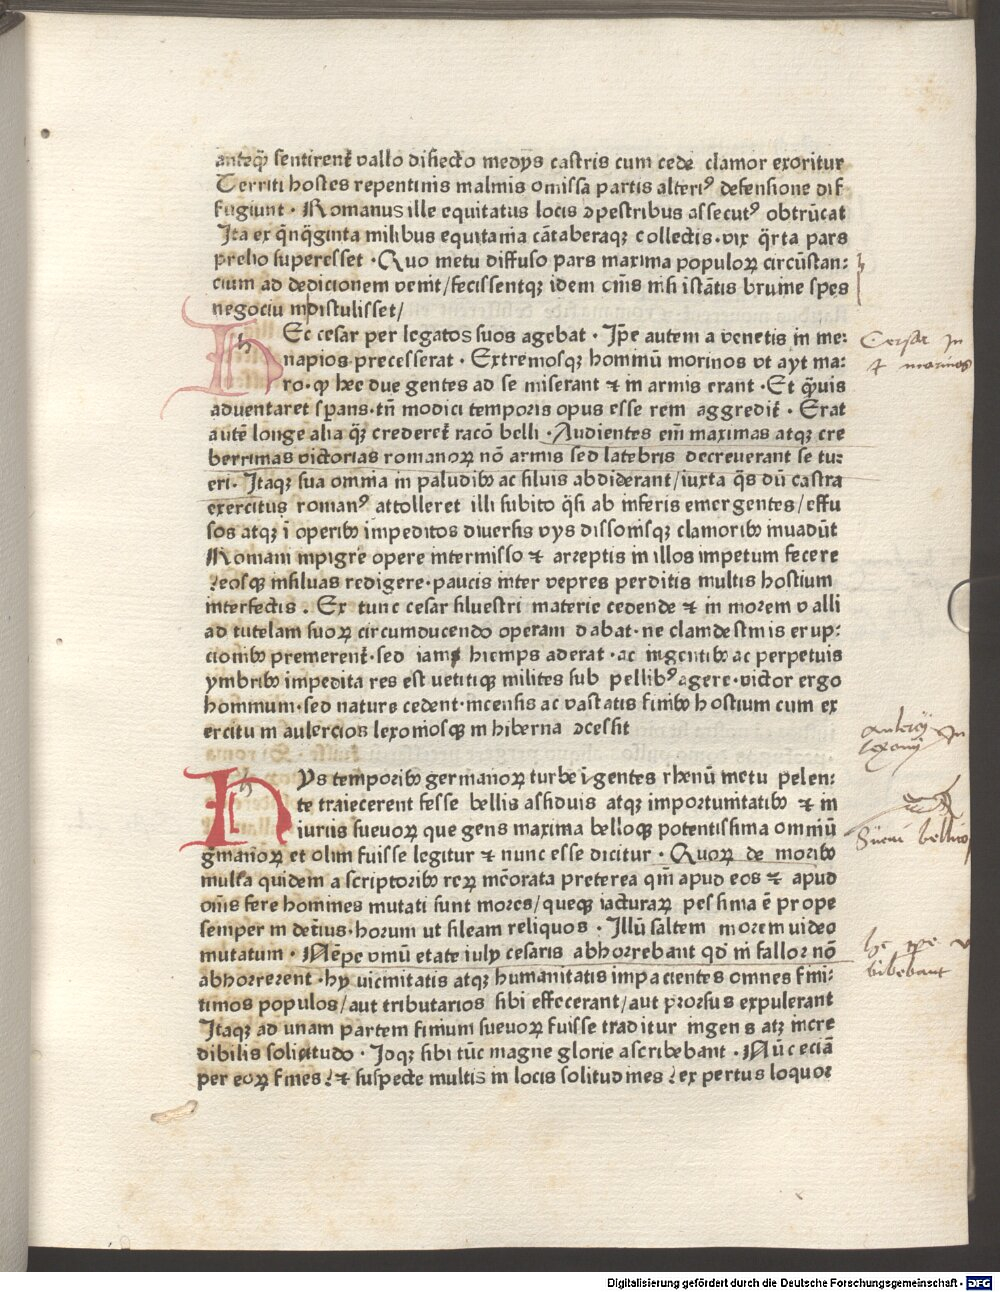 anteqꝫ sentirent̄ vallo disiecto medijs castris cum cede clamor exoritur
Territi hostes repentinis malis omissa partis alteri⁹ defensione dif
fugiunt · Romanus ille equitatus locis ꝯpestribus assecut⁹ obtrūcat
Ita ex q̄nq̄ginta milibus equitania cātaberaqꝫ collectis · vix q̄rta pars
prelio superesset · Quo metu diffuso pars maxima populoꝝ circūstan:
cium ad dedicionem venit/fecissentqꝫ idem om̄s nisi istātis brume spes
negociu m distulisset/
HEc cesar per legatos suos agebat · Ip̄e autem a venetis in me:
napios precesserat · Extremosqꝫ hominū morinos vt ayt ma:
ro · ꝙ hee due gentes ad se miserant ⁊ in armis erant · Et q̄uis
aduentaret sꝑans · tn̄ modici temporis opus esse rem aggredit̄ · Erat
autē longe alia q̄ꝫ crederet̄ racō belli · Audientes em̄ maximas atqꝫ cre
berrimas victorias romanoꝝ nō armis sed latebris decreuerant se tu:
eri · Itaqꝫ sua omnia in paludibꝫ ac siluis abdiderant/iuxta q̄s dū castra
exercitus roman⁹ attolleret illi subito q̄si ab inferis emergentes/effu
sos atqꝫ ī operibꝫ impeditos diuersis vijs dissonisqꝫ clamoribꝫ inuadūt
Romani inpigre opere intermisso ⁊ arreptis in illos impetum fecere
⁊eosqꝫ insiluas redigere · paucis inter vepres perditis multis hostium
interfectis . Ex tunc cesar siluestri materie cedende ⁊ in morem valli
ad tutelam suoꝝ circumducendo operam dabat · ne clamdestinis erup:
cionibꝫ premerent̄ · sed iam hiemps aderat · ac ingentibꝫ ac perpetuis
ymbribꝫ impedita res est uetitiqꝫ milites sub pellib⁹ agere · victor ergo
hominum · sed nature cedent · incensis ac vastatis finibꝫ hostium cum ex
ercitu in aulercios lexoniosqꝫ in hiberna ꝯcessit
HYs temporibꝫ germanoꝝ turbe īgentes rhenū metu pelen:
te traiecerent fesse bellis assiduis atqꝫ importunitatibꝫ ⁊ in
iuriis sueuoꝝ que gens maxima belloqꝫ potentissima omniū
ḡmanoꝝ et olim fuisse legitur ⁊ nunc esse dicitur · Quoꝝ de moribꝫ
multa quidem a scriptoribꝫ reꝝ mēorata preterea qm̄ apud eos ⁊ apud
om̄s fere homines mutati sunt mores/queqꝫ iacturaꝝ pessima ē prope
semper in deti̅us · horum ut sileam reliquos · Illū saltem morem uideo
mutatum · Nēpe vinū etate iuly cesaris abhorrebant qd̄ ni fallor nō
abhorrerent · hy uicinitatis atqꝫ humanitatis impacientes omnes fini:
timos populos/aut tributarios sibi effecerant/aut prorsus expulerant
Itaqꝫ ad unam partem finium sueuoꝝ fuisse traditur ingens atꝫ incre
dibilis solicitudo · Idqꝫ sibi tūc magne glorie ascribebant · Nūc eciā
per eoꝝ fines ⁊ suspecte multis in locis solitudines ⁊expertus loquor
Cersar In
⁊ morinos
aulercij In
lexonij
Sueui bellico
bibebant
Digitalisierung gefördert durch die Deutsche Forschungsgemeinschaft - DFG